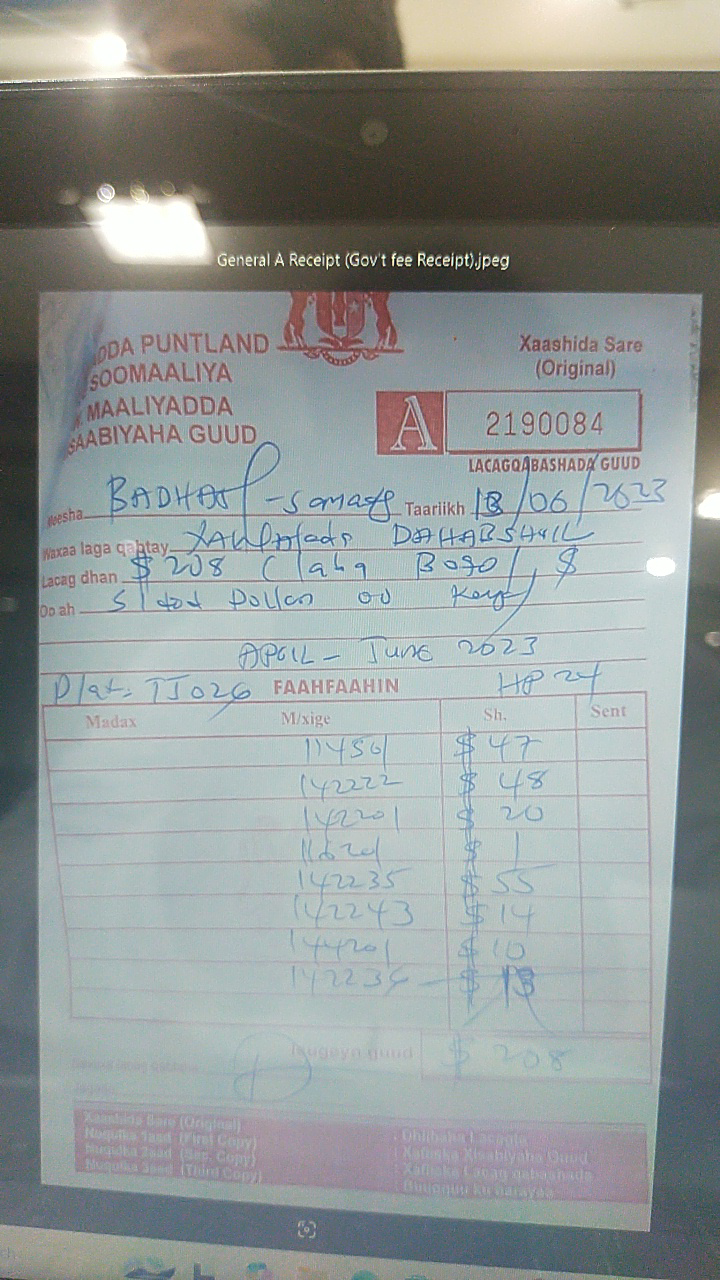 General A Receipt (Gov't fee Receipt).jpeg
DDA PUNTLAND
SOOMAALIYA
MAALIYADDA
SAABIYAHA GUUD
Xaashida Sare
(Original)
A 2190084
LACAGQABASHADA GUUD
Meesha BADHAN - Sanaag Taariikh 18/06/2023
Waxaa laga qabtay DAHABSHIIL
Lacag dhan $ 208 ( Laba Boqol,
Oo ah Dollar oo
APRIL - June 2023
Plat: TJ026 FAAHFAAHIN HP 24
Madax M/xige Sh. Sent
$ 47
142222 $ 48
142201 $ 20
$ 1
142235 $ 55
142243 $ 14
144201 $ 10
$ 13
Isugeya guud $ 208
Xaashida Sare (Original)
Nuqulka 1aad (First Copy)
Nuqulka 2aad (Sec. Copy)
Nuqulka 3aad (Third Copy)
Dhiibaha Lacagta
Xafiiska Xisabiyaha Guud
Xafiiska Lacag qabashada